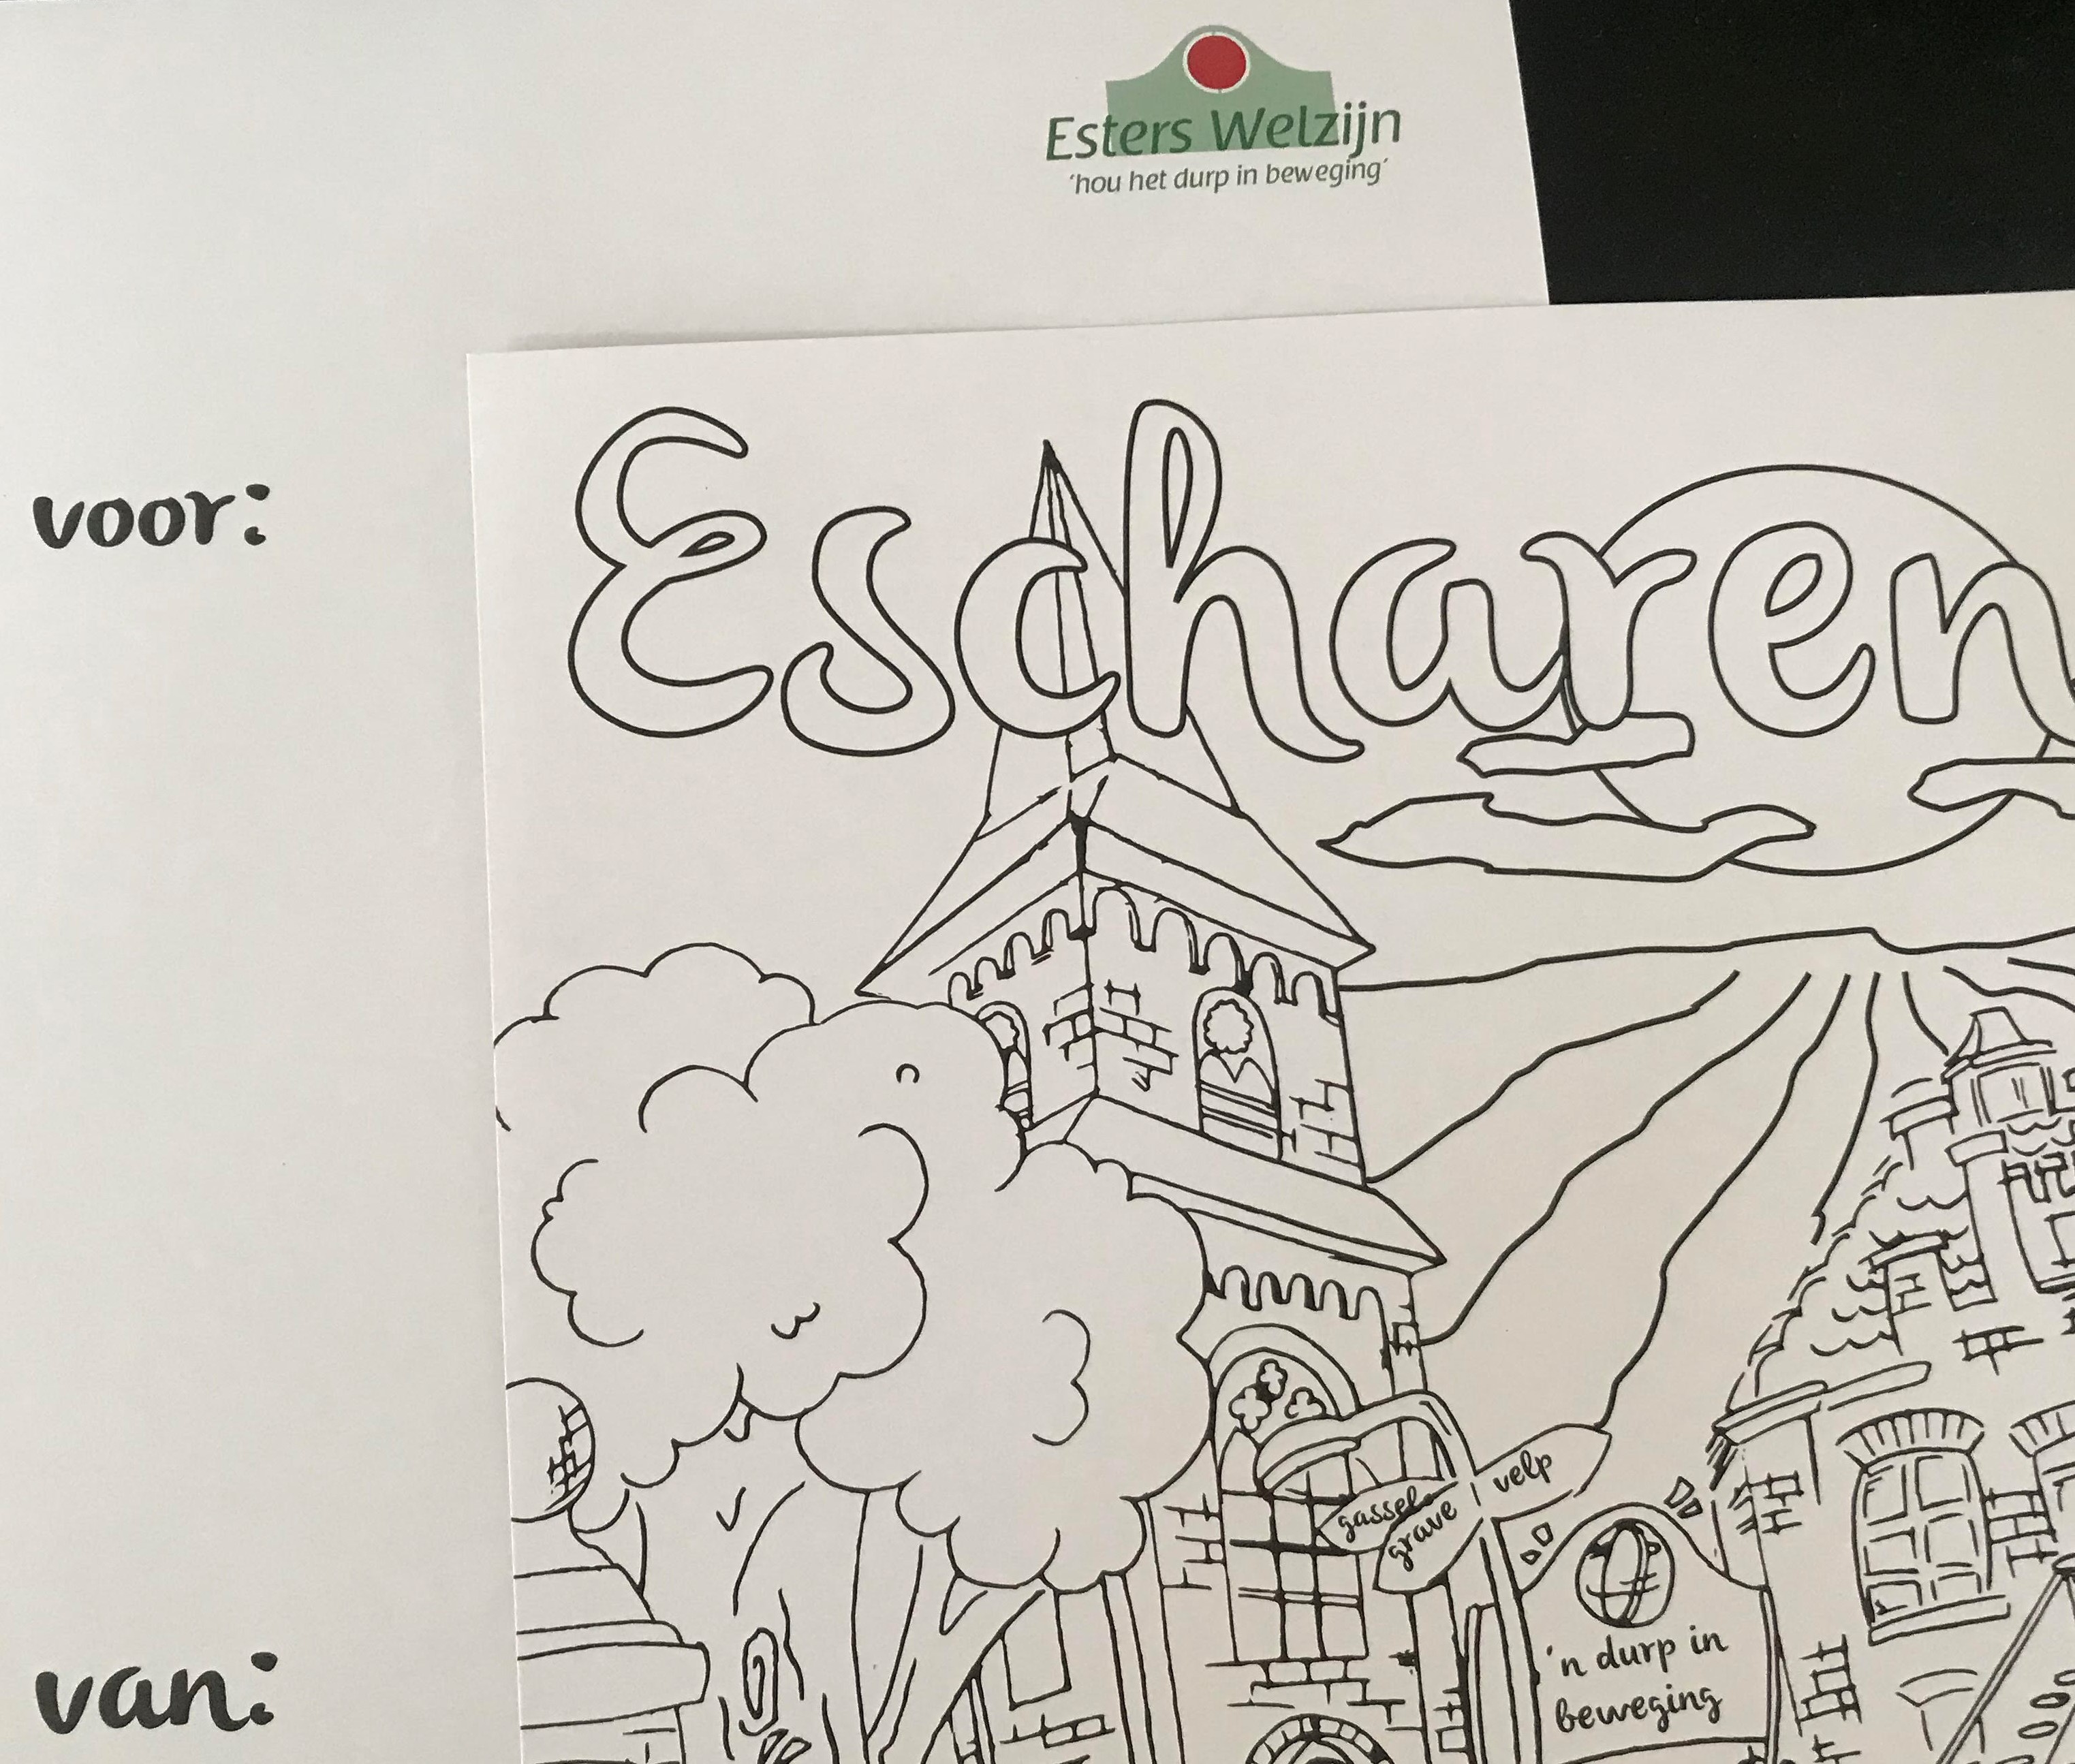 Esters Welzijn
‘hou het durp in beweging’
voor:
Escharen
velp
gassel
grave
'n durp in
beweging
van: